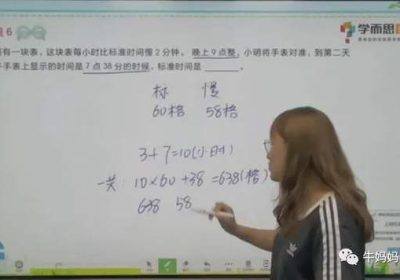 6
学而思
有一块表，这块表每小时比标准时间慢2分钟。晚上9点整，小明将手表对准，到第二天
手表上显示的时间是7点38分的时候，标准时间是
标 慢
60格 58格
3+7=10(小时)
一共：10×60+38=638(格)
638 58
牛妈妈